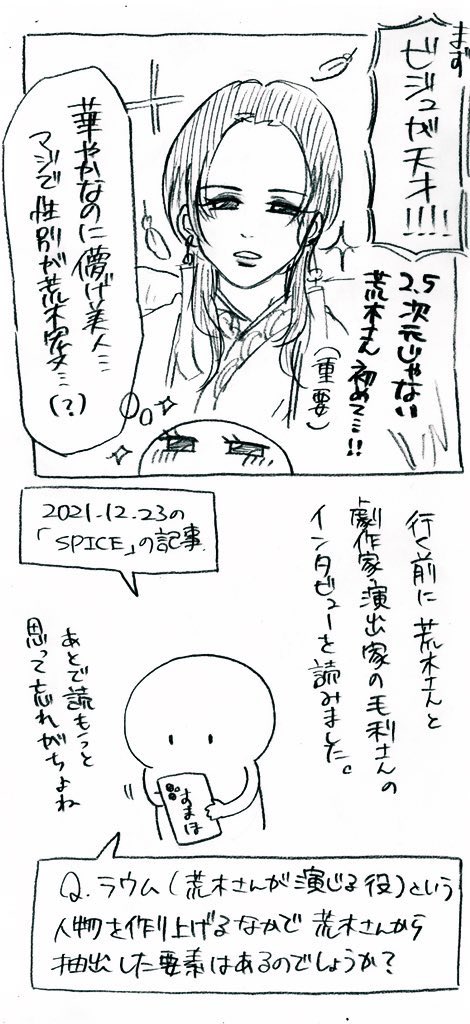 まず
ビジュが天才!!!!
2.5次元じゃない
荒木さん初めて…!!
(重要)
華やかなのに儚げ美人…
マジで性別が荒木宏文…
(?)
行く前に荒木さんと
劇作家・演出家の毛利さんの
インタビューを読みました。
2021.12.23の
「SPICE」の記事
あとで読もうと
思って忘れがちよね
すまほ
Q.ラウム(荒木さんが演じる役)という
人物を作り上げるなかで荒木さんから
抽出した要素はあるのでしょうか?